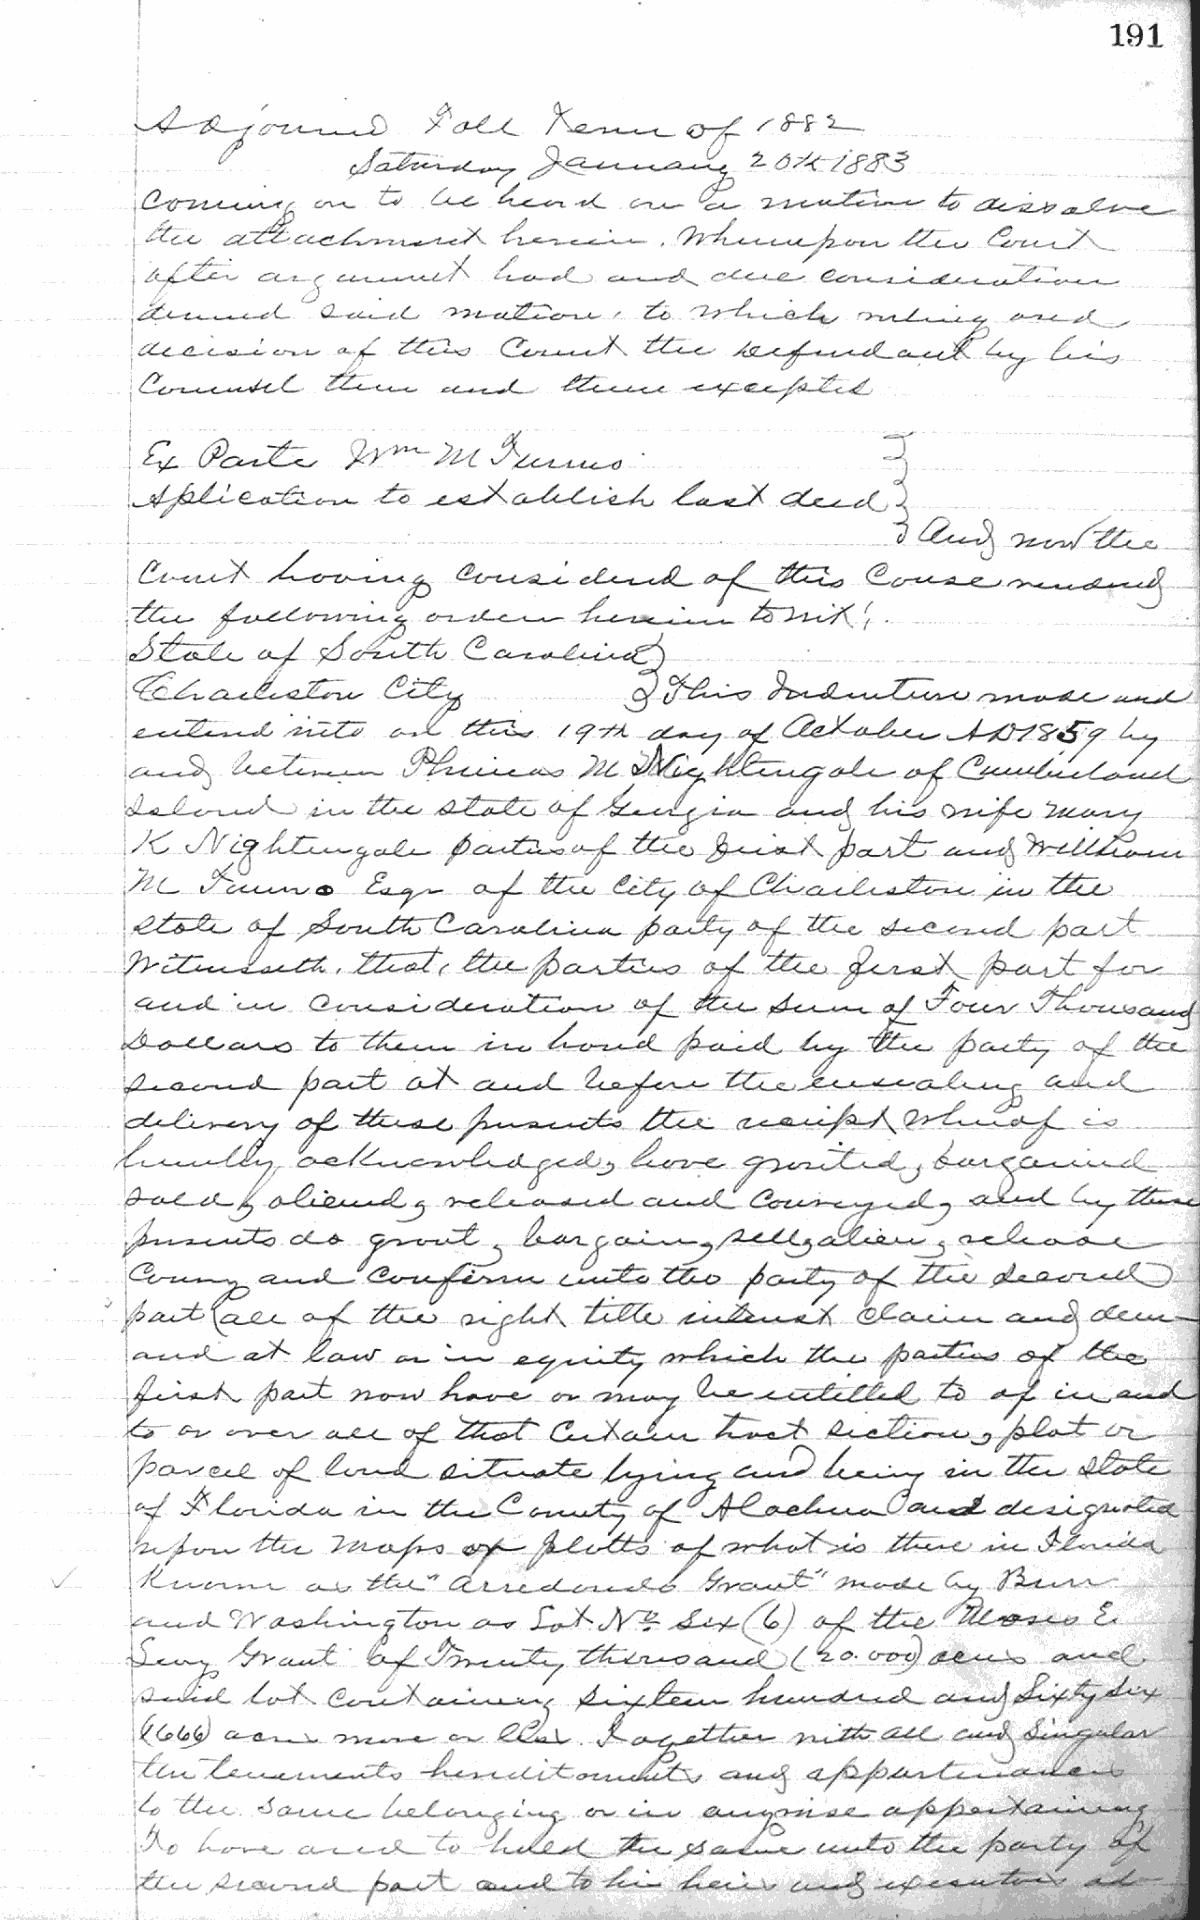 191
Adjourned Fall Term of 1882
Saturday January 20th 1883
Coming on to be heard on a motion to dissolve
the attachment herein. Whereupon the Court
after argument had and due consideration
denied said motion, to which ruling and
decision of this Court the defendant by his
Counsel then and there excepted
Ex Parte Wm M
Aplication to establish last deed
And now the
Court having considered of this Cause renders
the following order herein towit!
State of South Carolina
Charleston City This Indenture made and
entered into on this 19th day of October AD 1859 by
and between Phineas M Nightingale of Cumberland
Island in the state of Georgia and his wife Mary
K Nightingale parties of the first part and William
M Esqr of the City of Charleston in the
state of South Carolina party of the second part
Witnesseth, that, the parties of the first part for
and in consideration of the sum of Four Thousand
Dollars to them in hand paid by the party of the
second part at and before the ensealing and
delivery of these presents the receipt whereof is
hereby acknowledged, have granted, bargained
sold, aliened, released and conveyed, and by these
presents do grant, bargain, sell, alien, release
Convey and Confirm unto the party of the second
part (all of the right title interest claim and dem-
and at law or in equity which the parties of the
first part now have or may be entitled to of in and
to or over all of that Certain tract section, plat or
parcel of land situate lying and being in the state
of Florida in the County of Alachua and designated
upon the Maps or plotts of what is there in Florida
Known as the "Arredondo Grant" made by Burr
and Washington as Lot No Six (6) of the Moses E.
Levy Grant of Twenty thousand (20.000) acres and
said lot containing sixteen hundred and Sixty Six
(1666) acres more or less. Together with all and Singular
the tenements hereditaments and appurtenances
to the same belonging or in anywise appertaining
To have and to hold the same unto the party of
the second part and to his heirs and executors ad-